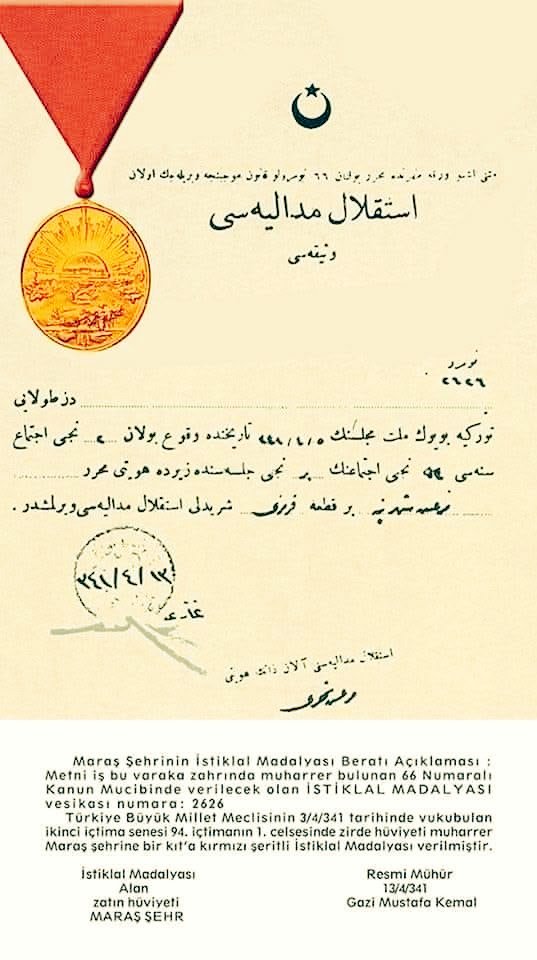 متنی اشبو ورقه ظهرنده محرر بولنان ٦٦ نومرولو قانون موجبنجه ويريله‌جك اولان
استقلال مداليه‌سی
وثيقه‌سی
نومرو
٢٦٢٦
دن طولایی
توركيه بويوك ملت مجلسنك ٣٤١/٤/٥ تاريخنده وقوع بولان ٢ نجی اجتماع
سنه‌سی نجی اجتماعنك بر نجی جلسه‌سنده زيرده هويتی محرر
مرعش شهرينه بر قطعه قرمزی شريدلی استقلال مداليه‌سی ويرلمشدر .
٣٤١/٤/١٣
غازی
استقلال مداليه‌سی آلان ذاتك هويتی
مرعش شهری
Maraş Şehrinin İstiklal Madalyası Beratı Açıklaması :
Metni iş bu varaka zahrında muharrer bulunan 66 Numaralı
Kanun Mucibinde verilecek olan İSTİKLAL MADALYASI
vesikası numara: 2626
Türkiye Büyük Millet Meclisinin 3/4/341 tarihinde vukubulan
ikinci içtima senesi 94. içtimanın 1. celsesinde zirde hüviyeti muharrer
Maraş şehrine bir kıt'a kırmızı şeritli İstiklal Madalyası verilmiştir.
İstiklal Madalyası
Alan
zatın hüviyeti
MARAŞ ŞEHR
Resmi Mühür
13/4/341
Gazi Mustafa Kemal